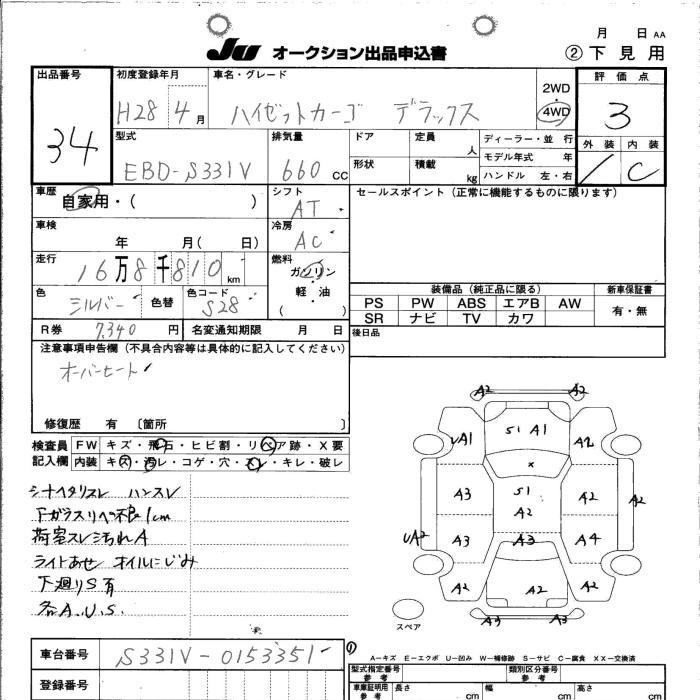 月 日 AA
JU オークション出品申込書 ② 下見用
出品番号 初度登録年月 車名・グレード 評価点
34 H28 4月 ハイゼットカーゴ デラックス 2WD 4WD 3
型式 排気量 ドア 定員 人 ディーラー・並行 外装 内装
EBD-S331V 660 CC 形状 積載 kg モデル年式 年 C
ハンドル 左・右
車歴 自家用・( ) シフト AT セールスポイント (正常に機能するものに限ります)
車検 年 月( 日) 冷房 AC
走行 16万8千810km 燃料 ガソリン 軽油 ( )
色 シルバー 色替 色コード S28
装備品 (純正品に限る) 新車保証書
PS PW ABS エアB AW 有・無
SR ナビ TV カワ
R券 7,340 円 名変通知期限 月 日 後日品
注意事項申告欄 (不具合内容等は具体的に記入してください)
オーバーヒート
修復歴 有 〔箇所 〕
検査員 FW キズ・飛石・ヒビ割・リペア跡・X要
記入欄 内装 キズ・汚レ・コゲ・穴・スレ・キレ・破レ
シートヘタリスレ ハンスレ
Fガラスリペア不良1cm
荷室スレ汚れA
ライトあせ オイルにじみ
下廻りS有
各A.U.S.
A2 A2
UA1 S1 A1 A2
A3 S1 A2 A2 A2
UA2 A3 A3 A4
A2 A2 A2
A3 A3
スペア
A-キズ E-エクボ U-凹み W-補修跡 S-サビ C-腐食 XX-交換済
車台番号 S331V-0153351
型式指定番号 参考 類別区分番号 参考
登録番号 車庫証明用 参考 長さ cm 幅 cm 高さ cm